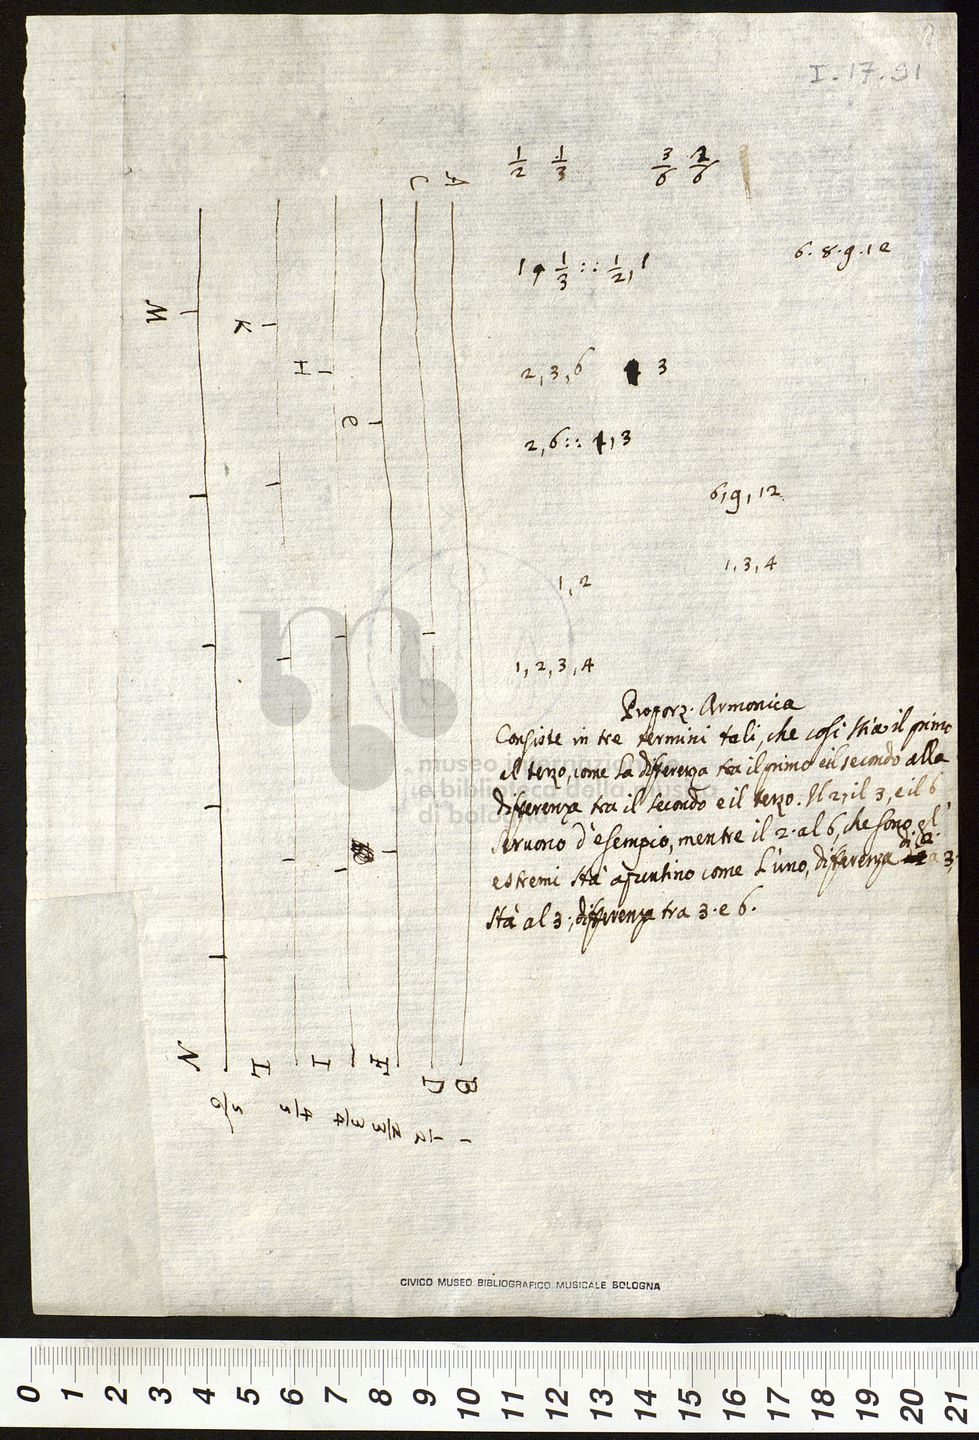 I.17.91
1/2 1/3 3/6 2/6
6.8.9.12
1, 1/3 :: 1/2, 1
2,3,6 3
2,6:: 1,3
6,9,12
1,3,4
1,2
1,2,3,4
Proporz. Armonica
Consiste in tre termini tali, che così stia il primo
al terzo, come la differenza tra il primo e il secondo alla
differenza tra il secondo e il terzo. Il 2, il 3, e il 6
servono d'esempio, mentre il 2. al 6, che sono gl'
estremi stà apuntino come l'uno, differenza di 2. a 3,
stà al 3, differenza tra 3. e 6.
A
C
e
H
K
M
B
D
F
I
L
N
1
1/2
2/3
3/4
4/5
5/6
museo internazionale
e biblioteca della musica
di bologna
CIVICO MUSEO BIBLIOGRAFICO MUSICALE BOLOGNA
0 1 2 3 4 5 6 7 8 9 10 11 12 13 14 15 16 17 18 19 20 21